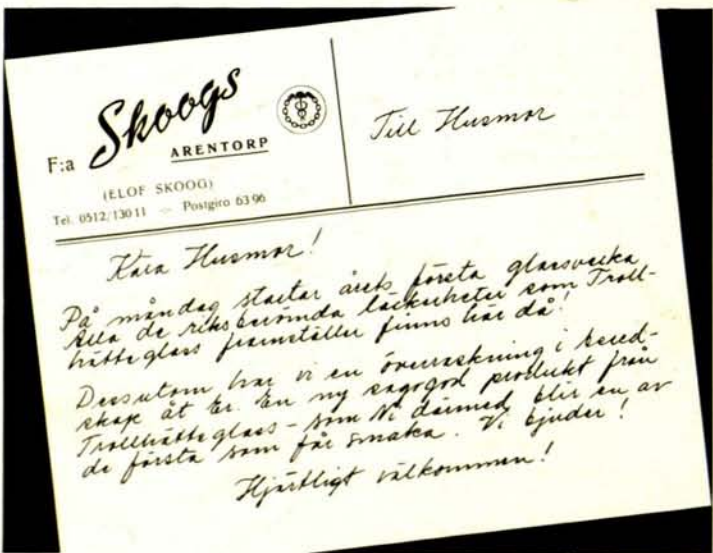 F:a Skoogs
ARENTORP
(ELOF SKOOG)
Tel. 0512/130 11 — Postgiro 63 96
Till Husmor
Kära Husmor!
På måndag startar årets första glassvecka
Alla de riksberömda läckerheter som Troll-
hätteglass framställer finns här då!
Dessutom har vi en överraskning i bered-
skap åt Er. En ny sagogod produkt från
Trollhätteglass – som Ni därmed blir en av
de första som får smaka. Vi bjuder!
Hjärtligt välkommen!